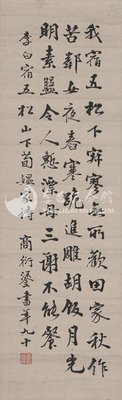 我宿五松下寂寥無所歡田家秋作
苦鄰女夜春寒跪進雕胡飯月光
明素盤令人慙漂母三謝不能餐
李白宿五松山下荀媼家詩 商衍鎏書年九十